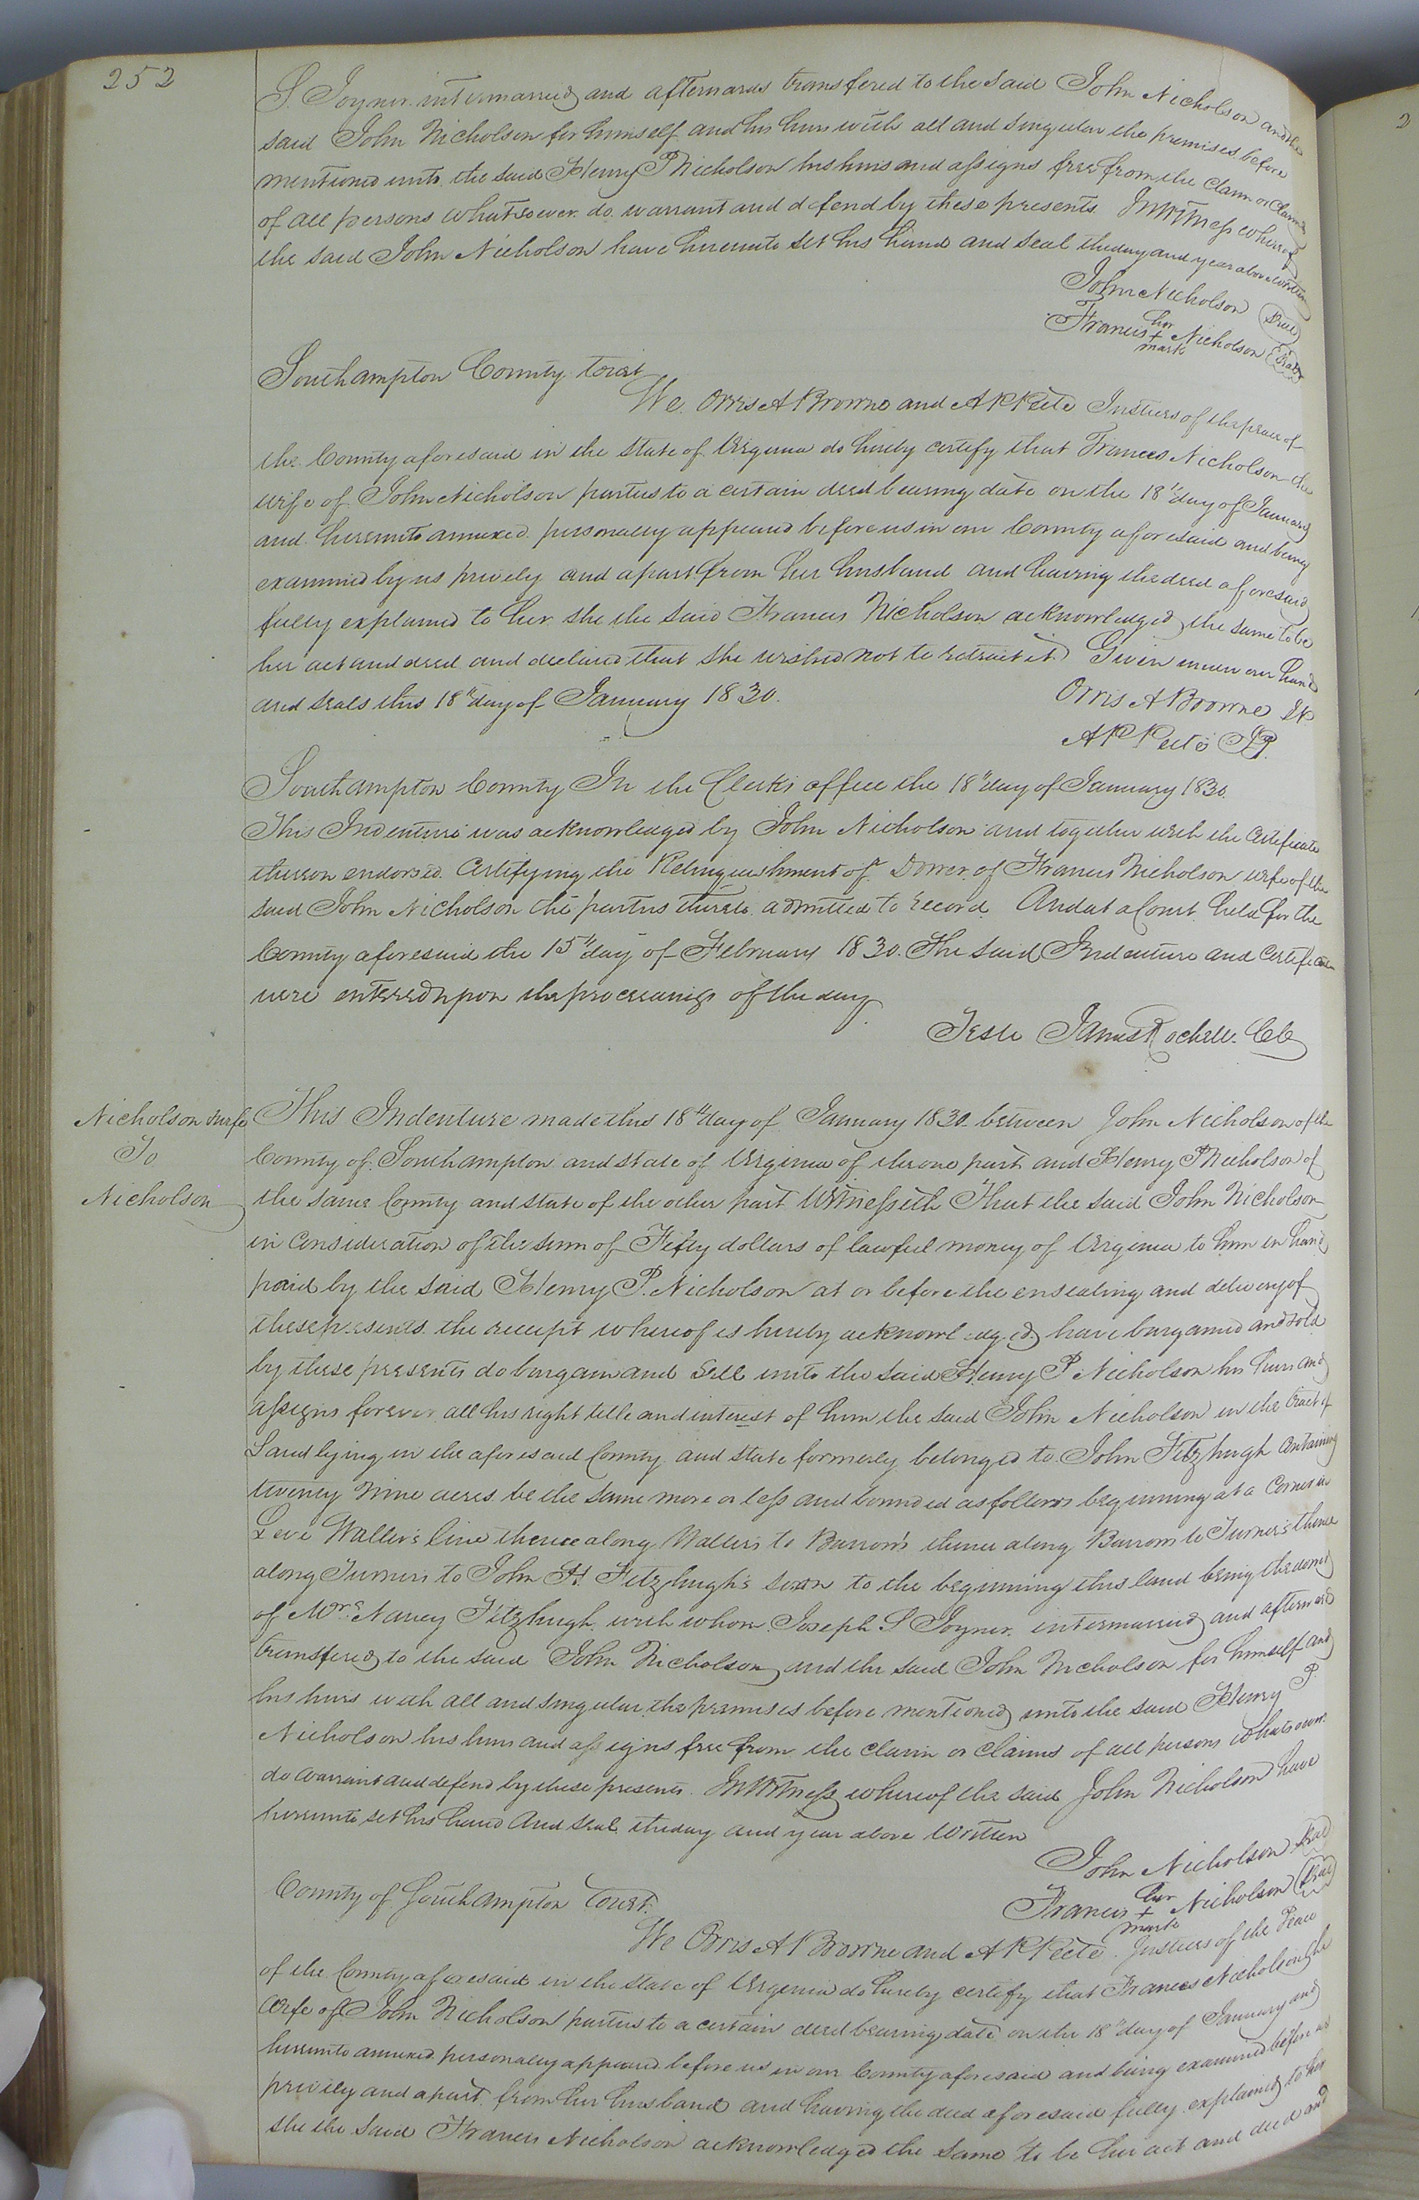 252
S Joyner intermarried and afterwards transfered to the said John Nicholson and the
said John Nicholson for himself and his heirs with all and singular the premises before
mentioned unto the said Henry P Nicholson his heirs and assigns free from the claim or claims
of all persons whatsoever do warrant and defend by these presents. In Witness whereof
the said John Nicholson have hereunto set his hand and seal the day and year above written
John Nicholson Seal
her
Francis + Nicholson Seal
mark
Southampton County towit
We Orris A Browne and A P Peete Justices of the peace of
the County aforesaid in the State of Virginia do hereby certify that Frances Nicholson the
wife of John Nicholson parties to a certain deed bearing date on the 18th day of January
and hereunto annexed personally appeared before us in our County aforesaid and being
examined by us privily and apart from her husband and having the deed aforesaid
fully explained to her she the said Francis Nicholson acknowledged the same to be
her act and deed and declared that she wished not to retract it. Given under our hand
and seals this 18th day of January 1830.
Orris A Browne JP
A P Peete JP.
Southampton County In the Clerks office the 18th day of January 1830.
This Indenture was acknowledged by John Nicholson and together with the certificate
thereon endorsed certifying the Relinquishment of Dower of Francis Nicholson wife of the
said John Nicholson the parties thereto admitted to record. And at a Court held for the
County aforesaid the 15th day of February 1830. The said Indenture and certificate
were entered upon the proceedings of the day
Teste James Rochelle. Clk
Nicholson & wife
To
Nicholson
This Indenture made this 18th day of January 1830 between John Nicholson of the
County of Southampton and State of Virginia of the one part and Henry P Nicholson of
the same County and State of the other part Witnesseth That the said John Nicholson
in consideration of the sum of Fifty dollars of lawful money of Virginia to him in hand
paid by the said Henry P. Nicholson at or before the ensealing and delivery of
these presents the receipt whereof is hereby acknowledged have bargained and sold
by these presents do bargain and Sell unto the said Henry P Nicholson his heirs and
assigns forever all his right title and interest of him the said John Nicholson in the tract of
Land lying in the aforesaid County and State formerly belonged to John Fitzhugh containing
twenty Nine acres be the same more or less and bounded as follows beginning at a corner in
Levi Waller's line thence along Wallers to Barrow's thence along Barrows to Turner's thence
along Turners to John H Fitzhugh's to the beginning this land being the
of Mrs. Nancy Fitzhugh with whom Joseph S Joyner intermarried and afterwards
transfered to the said John Nicholson and the said John Nicholson for himself and
his heirs with all and singular the premises before mentioned unto the said Henry P.
Nicholson his heirs and assigns free from the claim or claims of all persons whatsoever
do warrant and defend by these presents. In Witness whereof the said John Nicholson have
hereunto set his hand And Seal the day and year above Written
John Nicholson Seal
her
Francis + Nicholson Seal
mark
County of Southampton Towit.
We Orris A Browne and A P Peete Justices of the Peace
of the County aforesaid in the State of Virginia do hereby certify that Frances Nicholson the
Wife of John Nicholson parties to a certain deed bearing date on the 18th day of January and
hereunto annexed personally appeared before us in our County aforesaid and being examined before us
privily and apart from her husband and having the deed aforesaid fully explained to her
she the said Francis Nicholson acknowledged the same to be her act and deed and